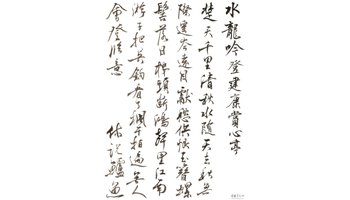 水龍吟登建康賞心亭
楚天千里清秋水隨天去秋無
際遥岑遠目獻愁供恨玉簪螺
髻落日樓頭斷鴻聲里江南
游子把吳鈎看了欄杆拍遍無人
會登臨意 休說鱸魚